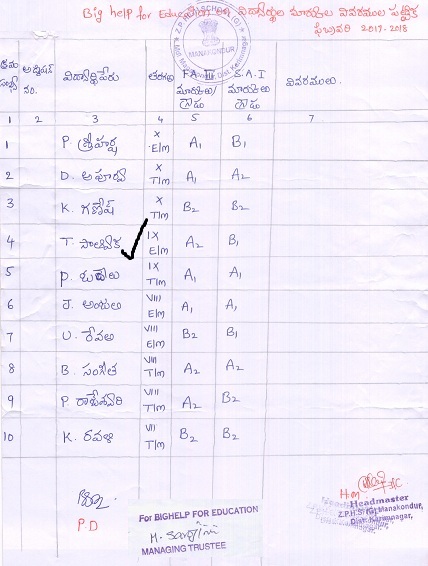 Big help for Education వారి విద్యార్థుల మార్కుల వివరముల పట్టిక
ఫిబ్రవరి 2017-2018
Z.P.H. SCHOOL (G)
MANAKONDUR
క్రమ సంఖ్య అడ్మిషన్ నం. విద్యార్థిపేరు తరగతి FA III మార్కులు/గ్రేడు S.A.I మార్కులు గ్రేడు వివరములు.
1 2 3 4 5 6 7
1 P. శ్రీహర్ష X E/m A1 B1
2 D. అపూర్వ X T/m A1 A2
3 K. గణేష్ X T/m B2 B2
4 T. సాత్విక IX E/m A2 B1
5 P. IX T/m A1 A1
6 J. అంజలి VIII E/m A1 A1
7 U. రేవతి VIII E/m B2 B1
8 B. సంగీత VIII T/m A2 A2
9 P. రాజేశ్వరి VII T/m A2 B2
10 K. రవళి VI T/m B2 B2
P.D
For BIGHELP FOR EDUCATION
MANAGING TRUSTEE
H.m
Headmaster
Z.P.H.S (G) Manakondur,
Dist: Karimnagar,